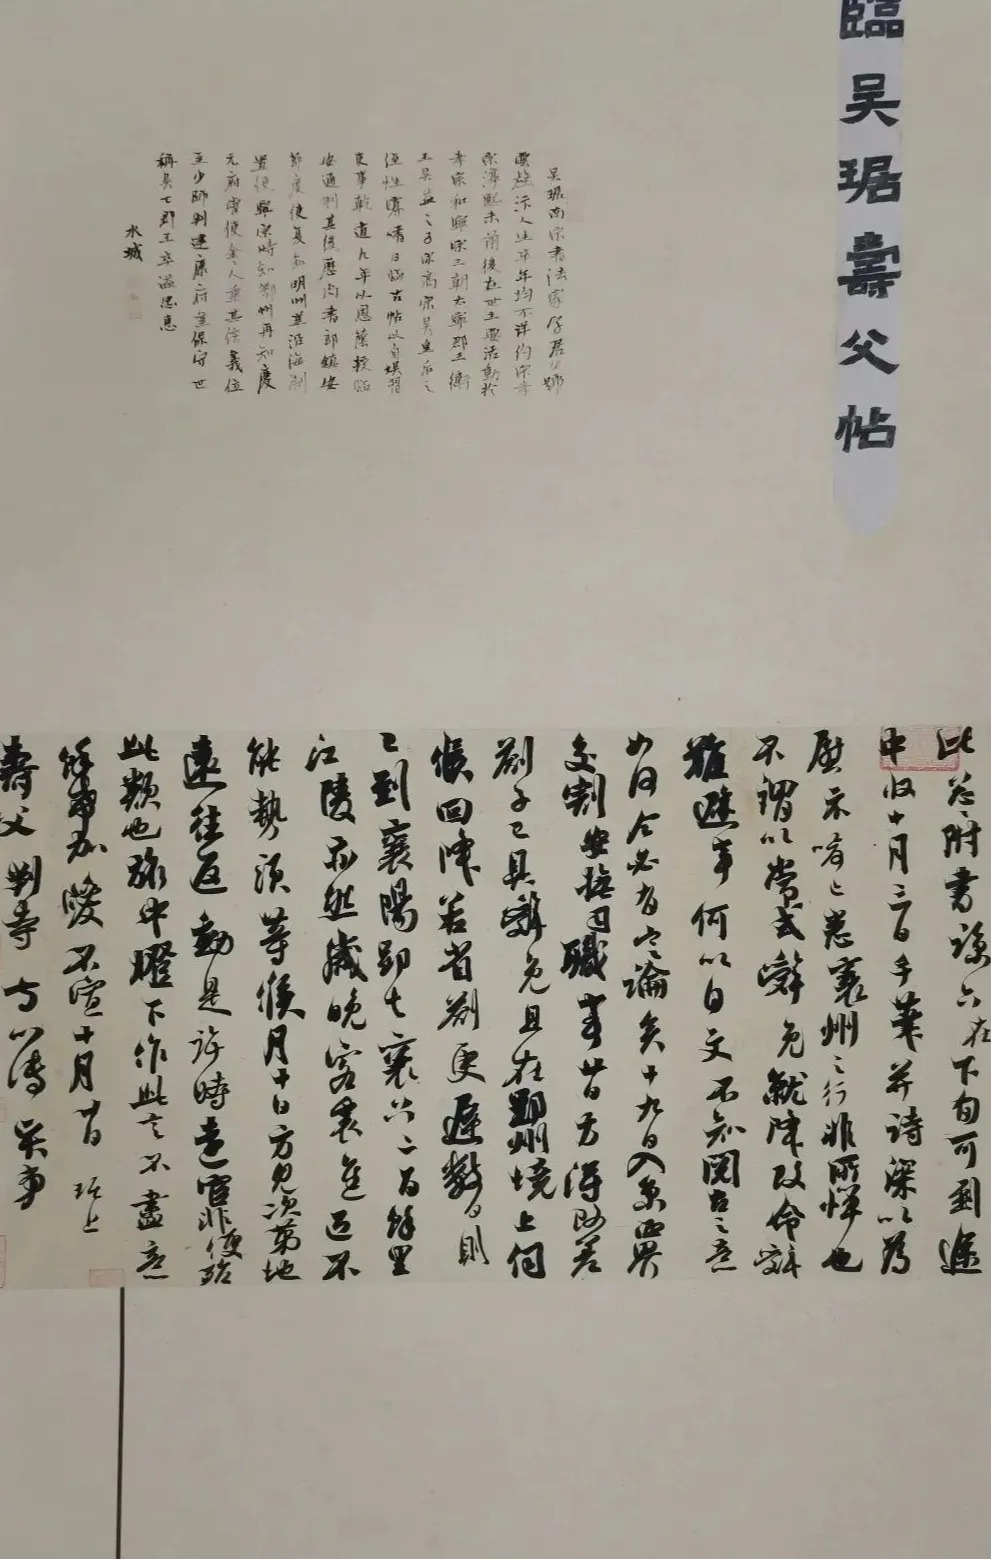 臨吴琚壽父帖
吴琚南宋書法家字居父號
雲壑汴人生卒年均不详约宋孝
宗淳熙末前後在世主要活動於
孝宗和寧宗三朝太寧郡王衛
王吴益之子宋高宗吴皇后之
侄性寡嗜日临古帖以自娱習
吏事乾道九年以恩蔭授临
安通判其後歷尚書郎鎮安
節度使复知明州兼沿海制
置使寧宗時知鄂州再知慶
元府嘗使金金人重其信義位
至少師判建康府兼保守世
稱吴七郡王卒謚忠惠
水城
此忽附書諒六在下旬可到遞
中收十月三日手筆并詩深以為
慰示喻上患襄州之行非所憚也
不謂以嘗試辭免就降改命辭
難避事何以自文不知閱古之意
如何今必有定論矣十九日入界
交割安撫司職事廿日方得
劄子已具辭免且在郢州境上伺
候回降若省劄更遲數日則
已到襄陽即去襄六二百餘里
江陵亦然歲晚客裏進退不
能勢須等候月十日方見次第地
遠往返動是許時遠宦非便殆
此類也旅中燈下作此言不盡意
餘幸加愛不宣十月廿日琚上
壽父判寺